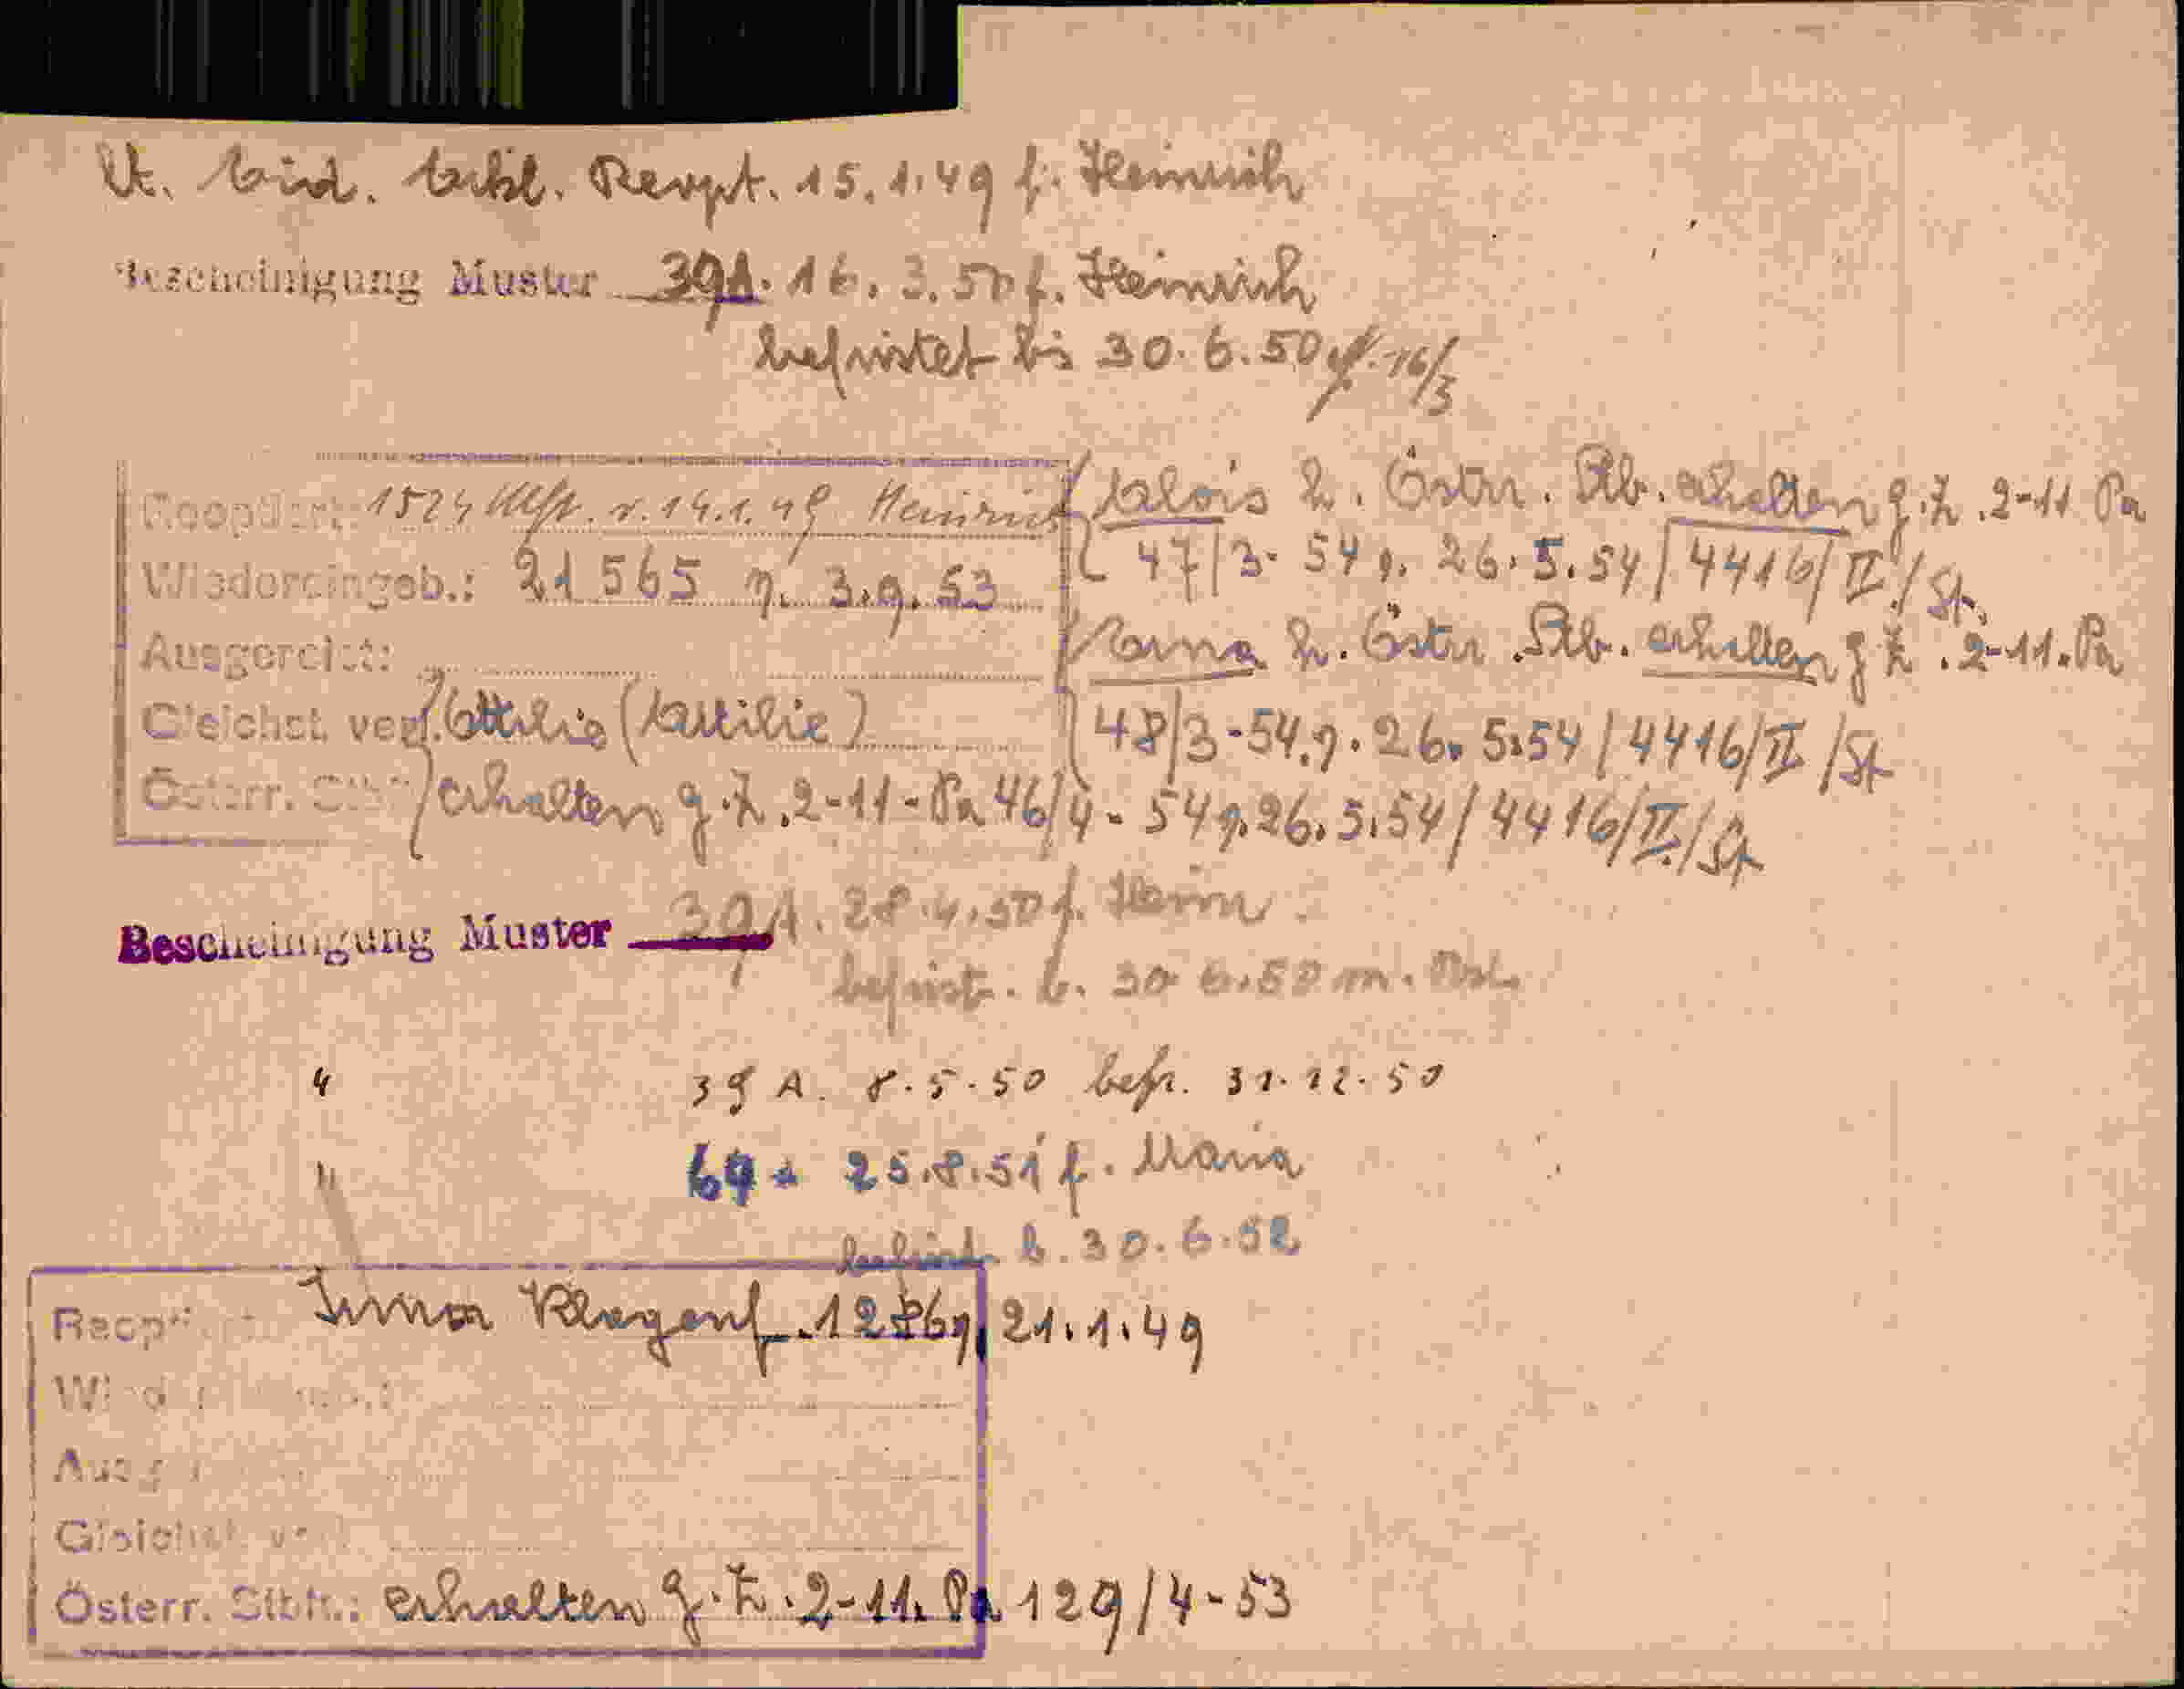 Reopt. 15.1.49 f. Heinrich
Bescheinigung Muster 39A. 16.3.50 f. Heinrich
befristet bis 30.6.50 16/3
Reoptiert: 1524 v. 14.1.49 Heinrich
Wiedereingeb.: 21565 v. 3.9.53
Ausgereist:
Gleichst. verl. Ottilie (Auttilie)
Österr. Stb. erhalten g.Z. 2-11-Pa 46/4-54 v. 26.5.54/4416/II/St
Alois h. Östr. Stb. erhalten g.Z. 2-11 Pa
47/3-54 v. 26.5.54/4416/II/St.
Anna h. Östr. Stb. erhalten g.Z. 2-11.Pa
48/3-54 v. 26.5.54/4416/II/St
Bescheinigung Muster 39A. 28.4.50 f. Heinr.
befrist. b. 30.6.50
" 39 A. 8.5.50 befr. 31.12.50
" 69 25.8.51 f. Maria
befrist. b. 30.6.52
Reopt. Klagenf. 21.1.49
Gleichst. verl.
Österr. Stbh.: erhalten g.Z. 2-11. Pa 129/4-53